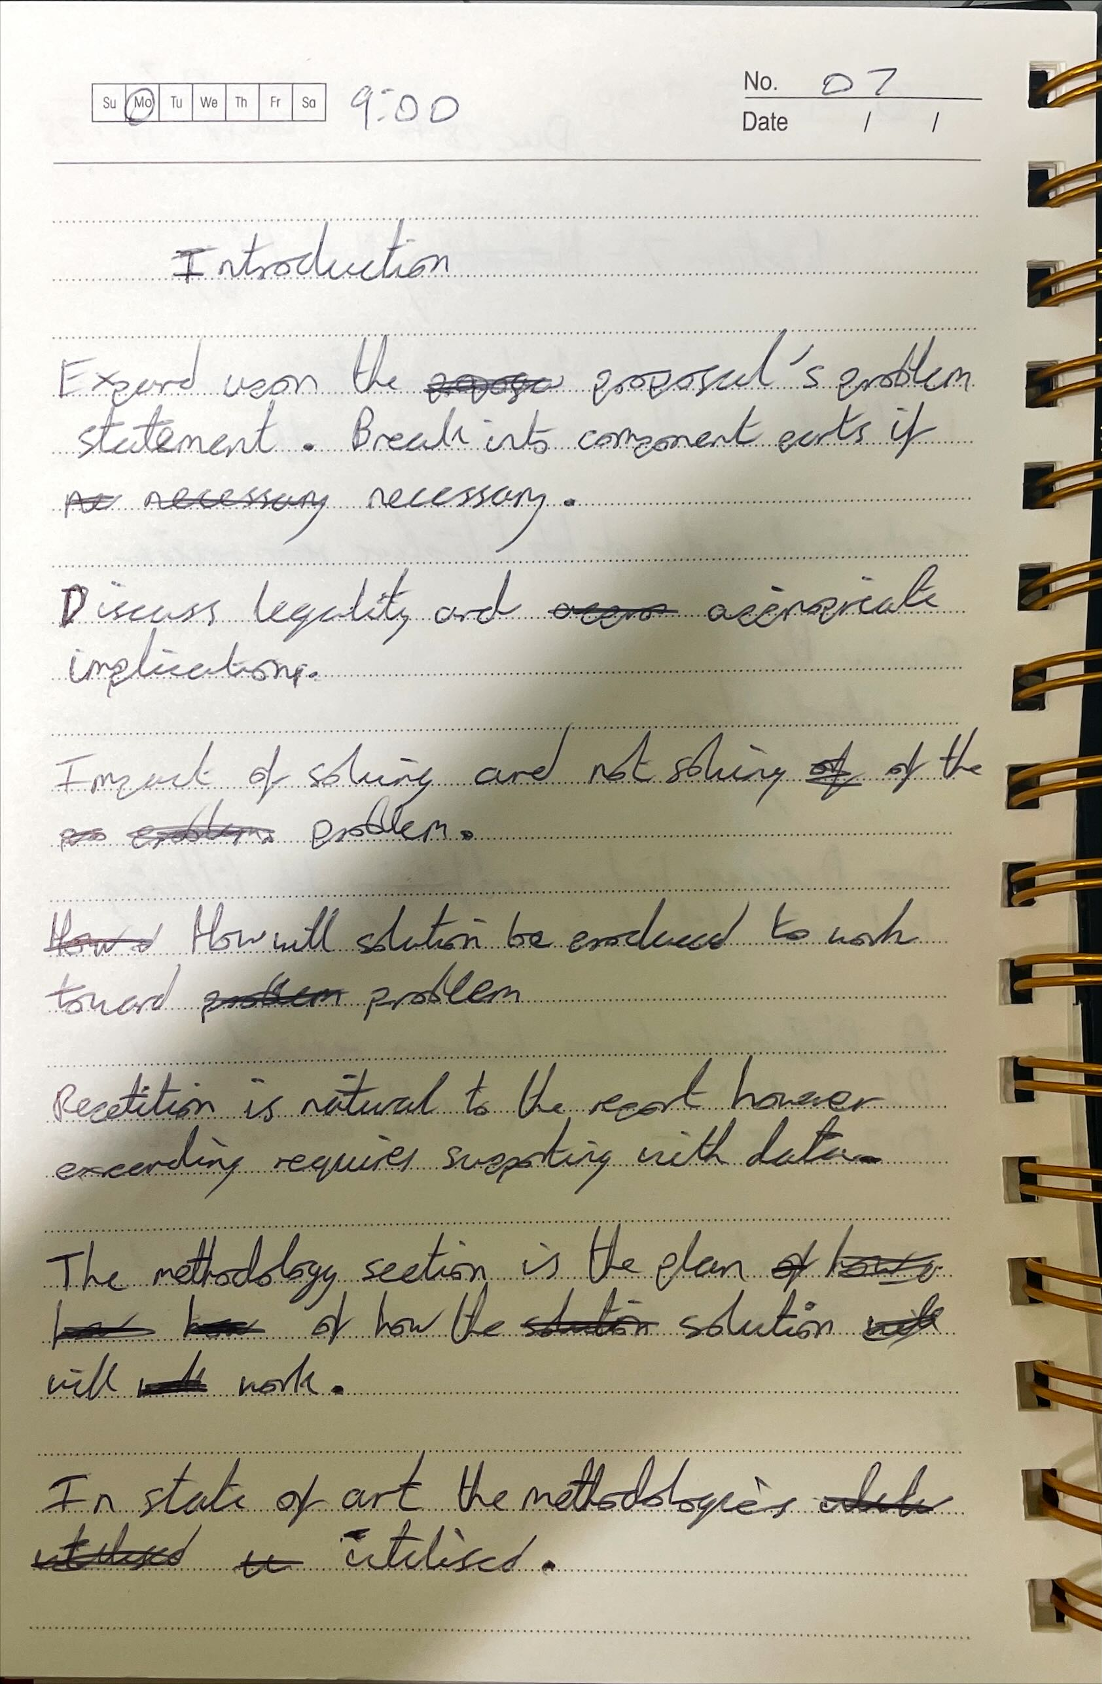 Su Mo Tu We Th Fr Sa 9:00 No. 07
Date / /
Introduction
Expand upon the proposal's problem
statement. Break into component parts if
ne necessary necessary.
Discuss legality and appro appropriate
implications.
Impact of solving and not solving of of the
pro problem problem.
How How will solution be produced to work
toward problem problem
Repetition is natural to the report however
expanding requires supporting with data.
The methodology section is the plan of how
how how of how the solution solution will
will work.
In state of art the methodologies
utilised u utilised.